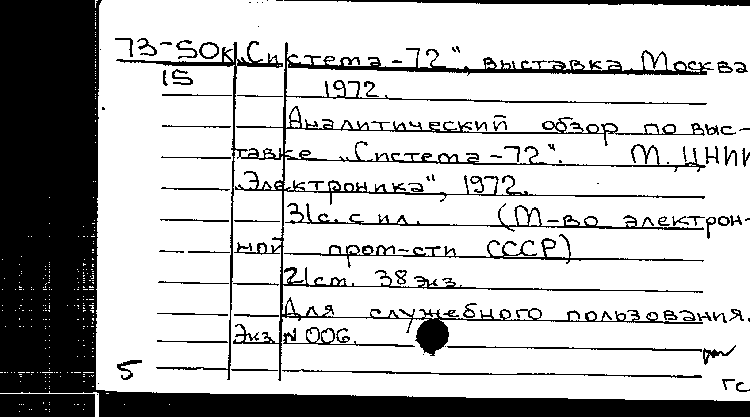 73-50К „Система-72", выставка. Москва
15 1972.
Аналитический обзор по выс-
тавке „Система-72". М., ЦНИИ
„Электроника", 1972.
31с. с ил. (М-во электрон-
ной пром-сти СССР)
21см. 38 экз.
Для служебного пользования.
Экз N 006.
5